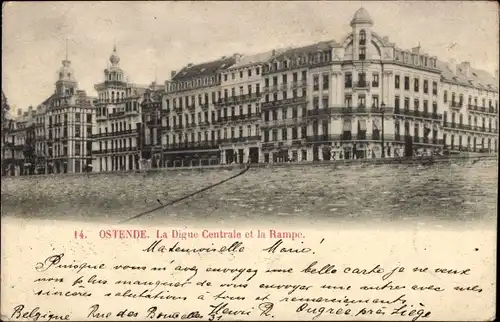 14. OSTENDE. La Digue Centrale et la Rampe.
Mademoiselle Marie!
Puisque vous m'avez envoyez une belle carte je ne veux
non plus manquer de vous envoyer une autre avec mes
sincères salutations à tous et remerciements
Belgique Rue des 31 Henri R. Ougrée, près Liège